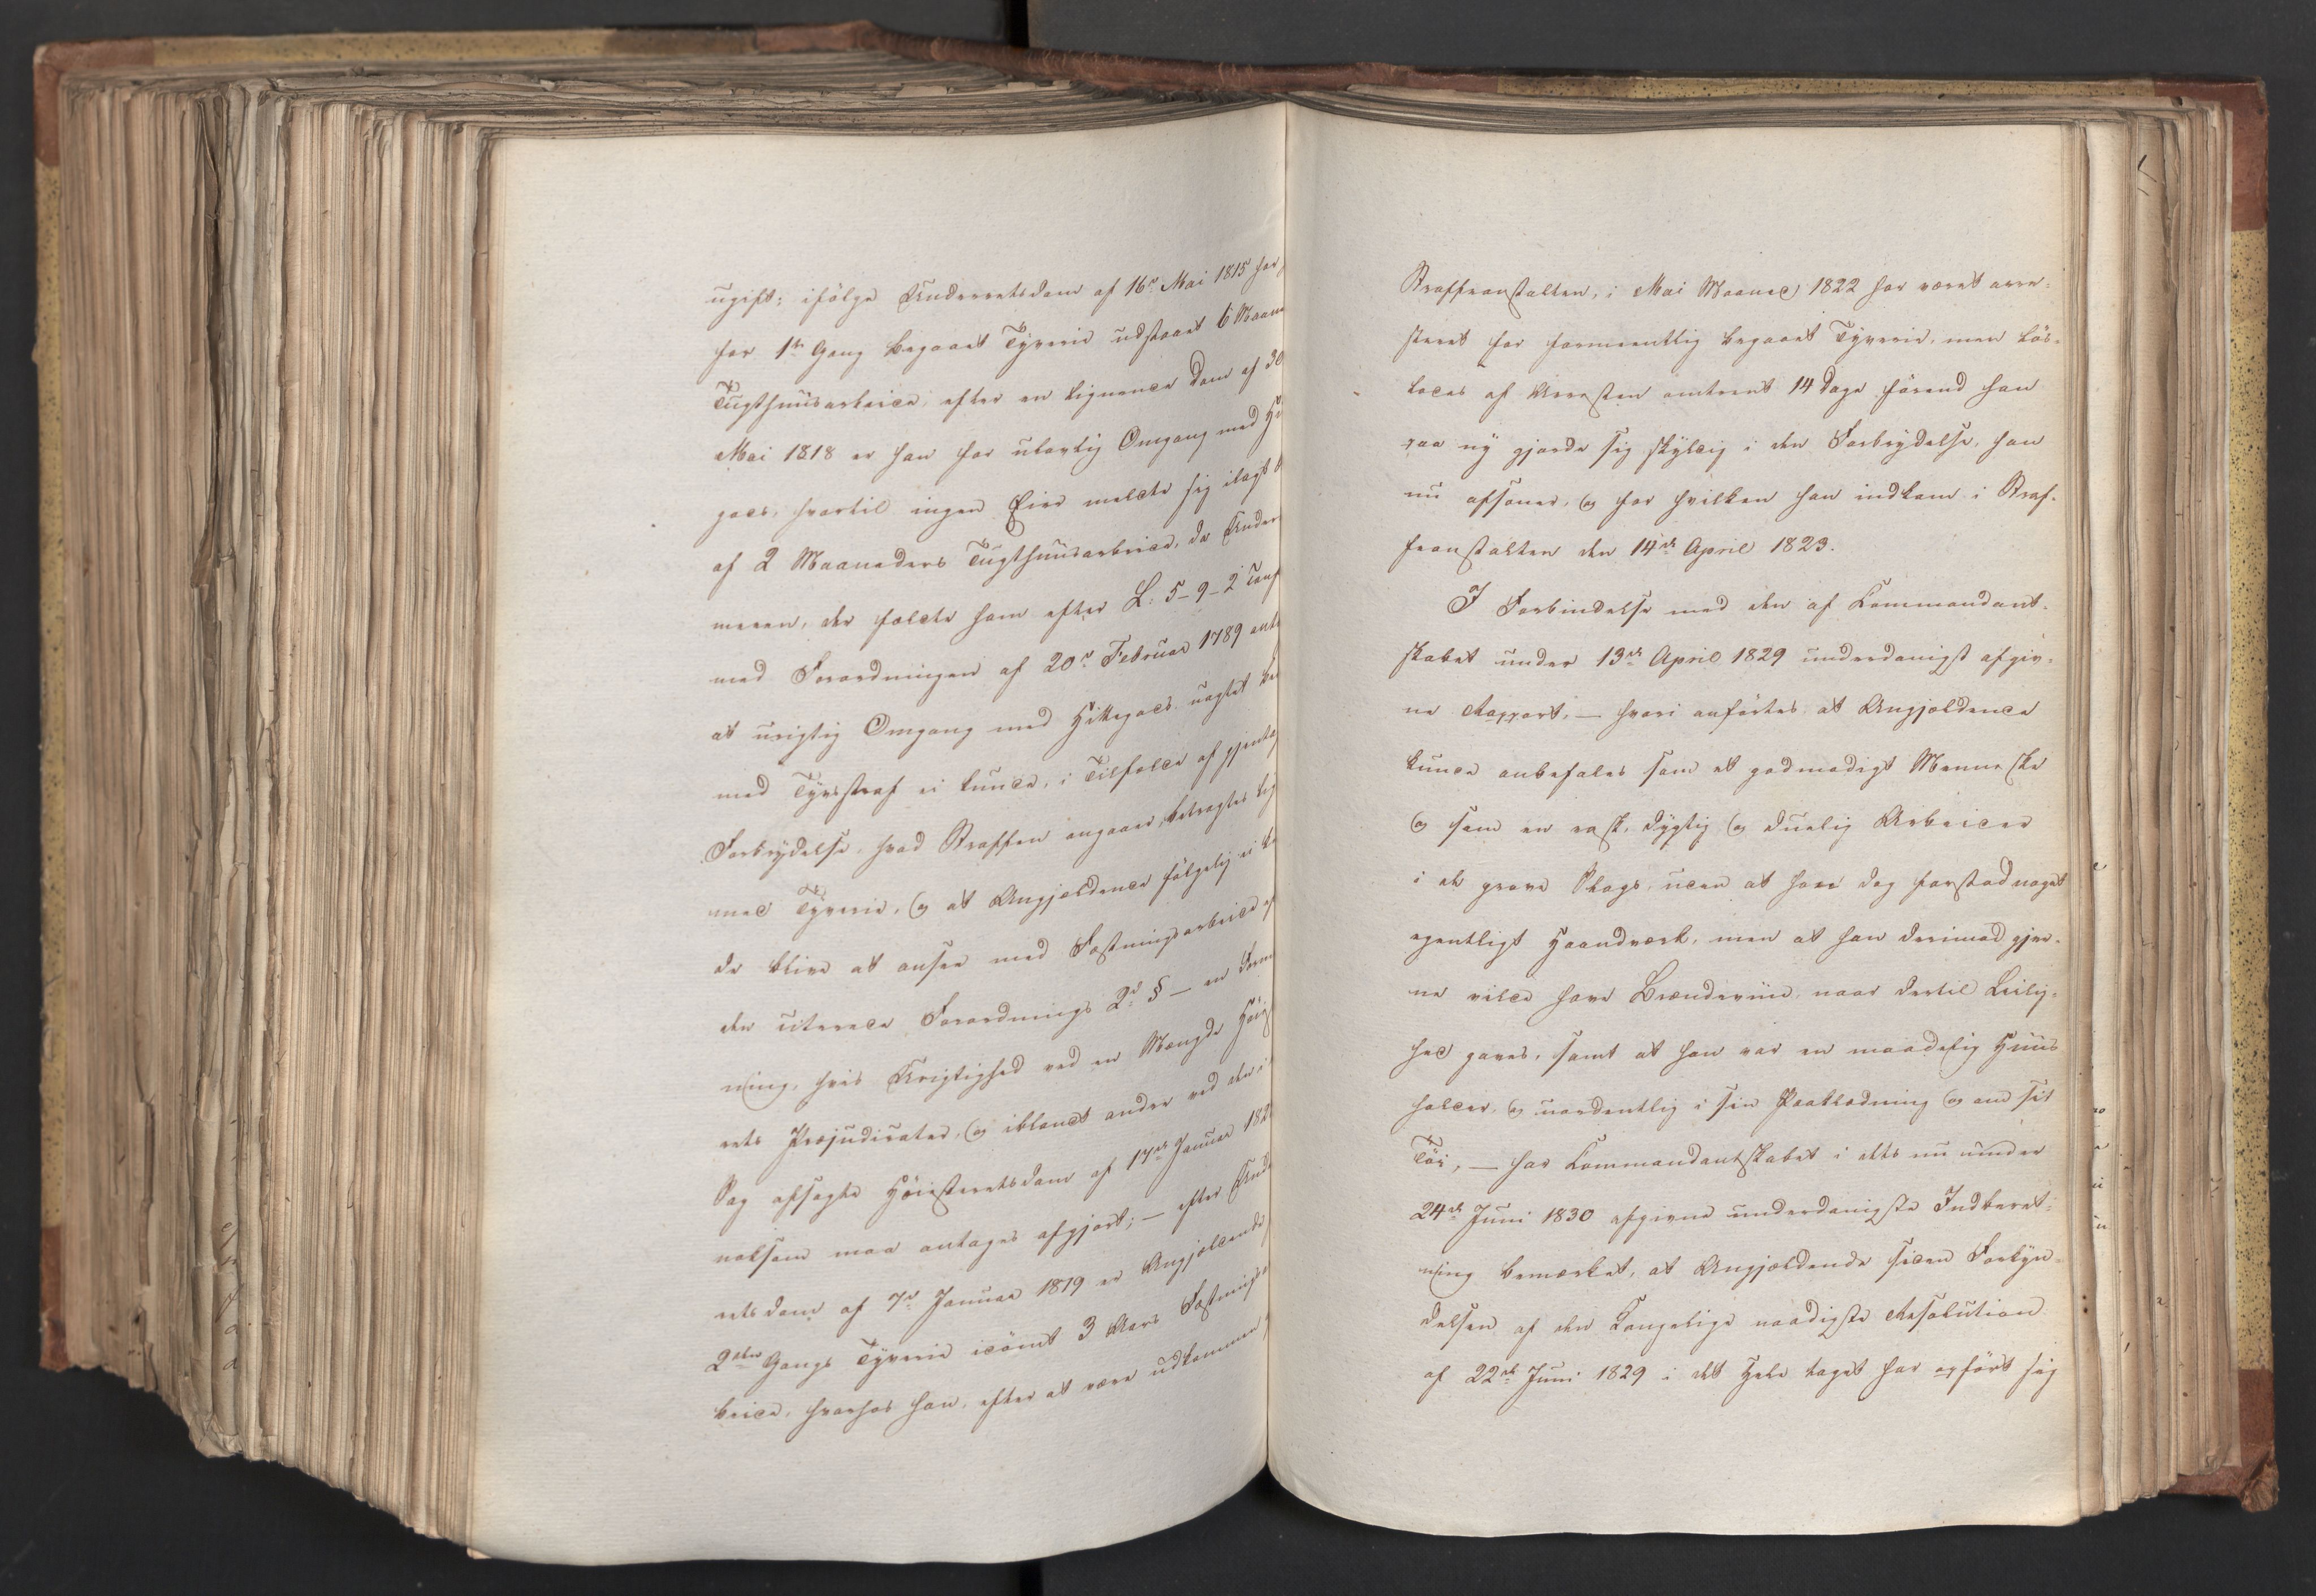 ugift; ifölge Underretsdom af 16de Mai 1815 har
for 1ste Gang begaaet Tyverie udstaaet 6 Maane
Tugthuusarbeide, efter en lignende Dom af 30
Mai 1818 er han for ulovlig Omgang med Hi
gods, hvortil ingen Eier meldte sig ilagt
af 2 Maaneders Tugthuusarbeide, da Under
meren, der fældte ham efter L: 5-9-2 sam
med Forordningen af 20de Februar 1789 ant
at urigtig Omgang med Hittegods uagtet be
med Tyvsstraf ei kunde, i Tilfælde af gjenta
Forbrydelse, hvad Straffen angaaer, betragtes lig
med Tyverie, og at Angjældende følgelig ei ku
de blive at ansee med Fæstningsarbeide ef
den citerede Forordnings 2den § — en Form
ning, hvis Urigtighed ved en Mængde Høie
rets Præjudicater, og iblandt andre ved den i
Sag afsagte Høiesteretsdom af 17de Januar 182
noksom maa antages afgjort; — efter Unde
retsdom af 7de Januar 1819 er Angjældende
2den Gangs Tyverie idömt 3 Aars Fæstnings
beide, hvorhos han, efter at være udkommen
Straffeanstalten, i Mai Maaned 1822 har været arre-
steret for formeentlig begaaet Tyverie, men lös-
lodes af Arresten omtrent 14 Dage förend han
paa ny gjorde sig skyldig i den Forbrydelse, han
nu afsoner, og for hvilken han indkom i Straf-
feanstalten den 14de April 1823.
I Forbindelse med den af Commandant-
skabet under 13de April 1829 underdanigst afgiv-
ne Rapport, — hvori anførtes at Angjældende
kunde anbefales som et godmodigt Menneske
og som en rask, dygtig og duelig Arbeider
i det grove Slags, uden at have dog forstod noget
egentligt Haandværk, men at han derimod gjer-
ne vilde have Brændeviin, naar dertil Leilig-
hed gaves, samt at han var en maadelig Huus
holder, og uordentlig i sin Paaklædning og om sit
Töi, — har Commandantskabet i dets nu under
24de Juni 1830 afgivne underdanigste Indberet-
ning bemærket, at Angjældende siden Forkyn-
delsen af den Kongelige naadigste Resolution
af 22de Juni 1829 i det Hele taget har opført sig